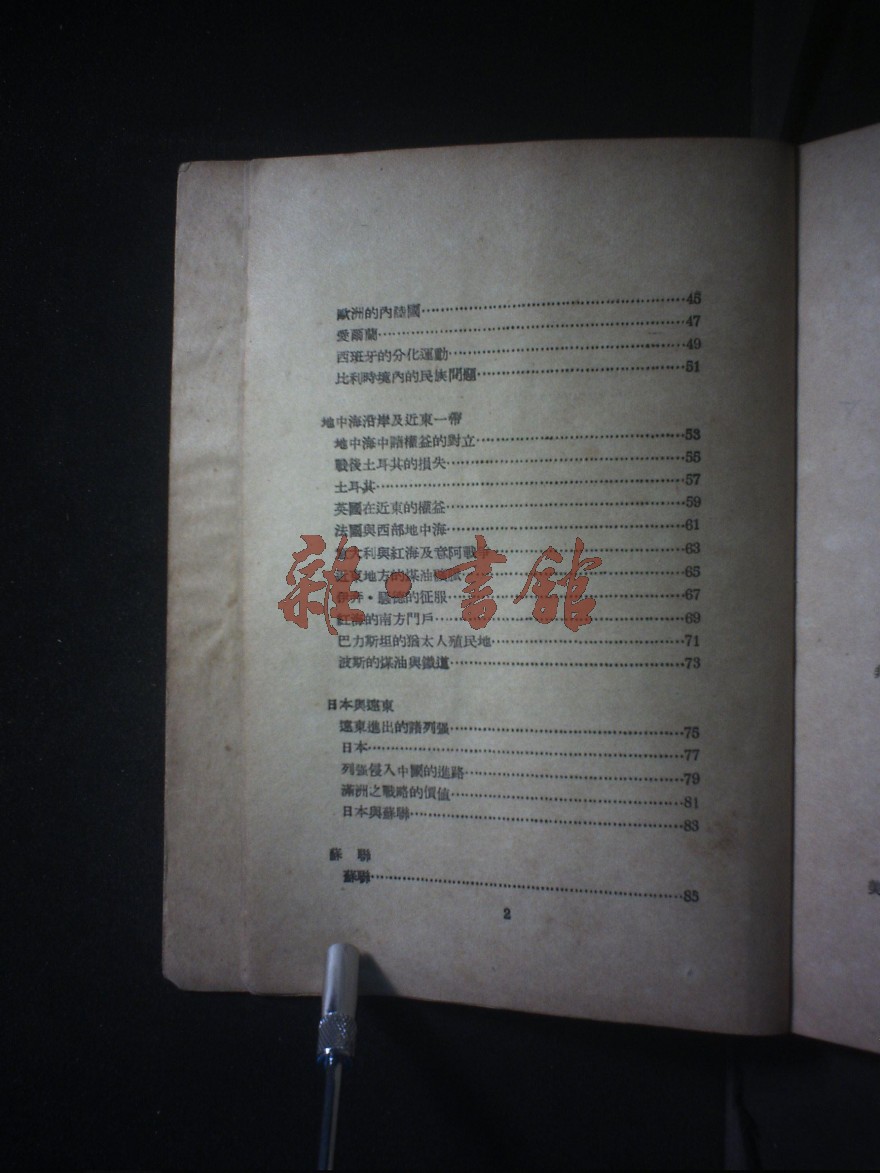 歐洲的內陸國……45
愛爾蘭……47
西班牙的分化運動……49
比利時境內的民族問題……51
地中海沿岸及近東一帶
地中海中諸權益的對立……53
戰後土耳其的損失……55
土耳其……57
英國在近東的權益……59
法國與西部地中海……61
意大利與紅海及意阿戰爭……63
近東地方的煤油……65
的征服……67
紅海的南方門戶……69
巴力斯坦的猶太人殖民地……71
波斯的煤油與鐵道……73
日本與遠東
遠東進出的諸列強……75
日本……77
列強侵入中國的進路……79
滿洲之戰略的價值……81
日本與蘇聯……83
蘇 聯
蘇聯……85
2
雜·書館